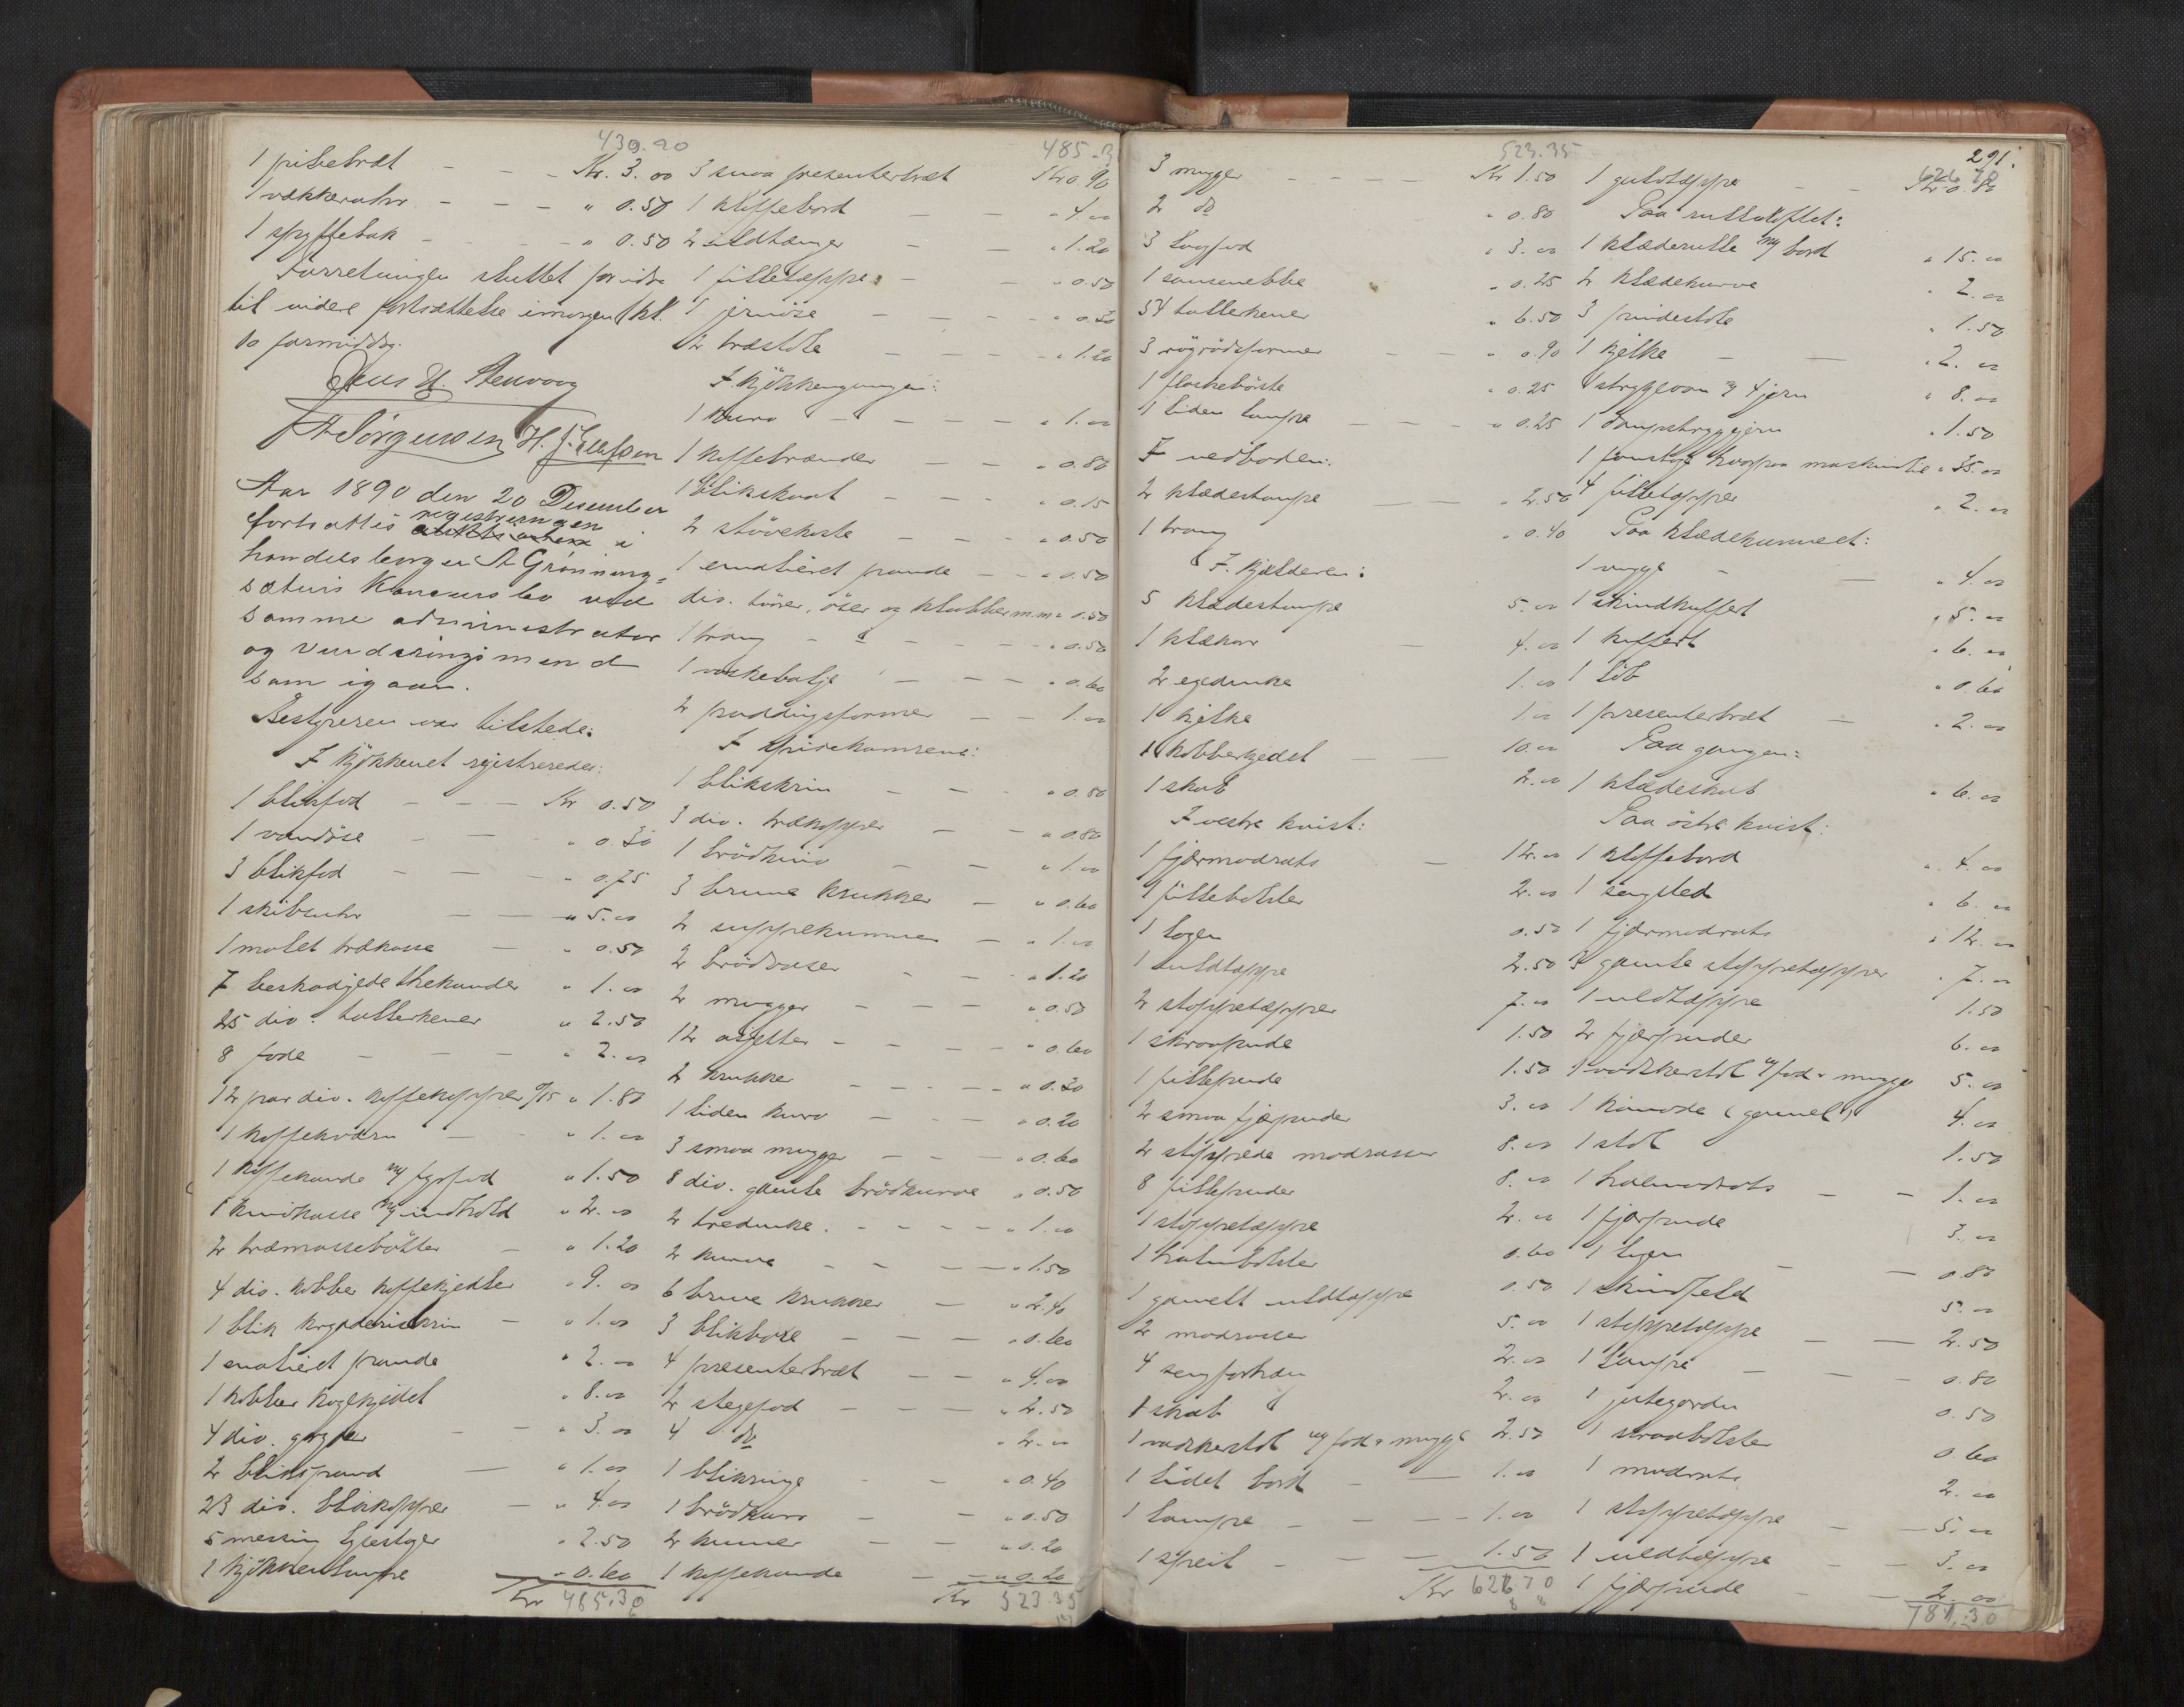 439.90
1 pibebræt - - Kr. 3.00
1 vækkeruhr - - - " 0.50
1 spyttebak - - - " 0.50
Forretningen sluttet for idag
til videre fortsættelse imorgen kl.
10 formiddag.
Jens H. Stenvaag
A Sörgensen H. J. Ellefsen
Aar 1890 den 20 December
fortsattes registreringen i
handelsborger A Grönning-
sæters Concursbo ved
samme administrator
og vurderingsmænd
som igaar.
Bestyreren var tilstede.
I kjøkkenet registreredes:
1 blikfad - - - Kr 0.50
1 vandöse - - " 0.30
3 blikfad - - - " 0.75
1 skibsuhr - - " 5.00
1 malet trækasse - " 0.50
7 beskadigede thekander " 1.00
25 div. tallerkener " 2.50
8 fade - - - " 2.00
12 par div. kaffekopper 0/15 " 1.80
1 kaffekværn - - " 1.00
1 kaffekande " 1.50
1 knivkasse m/ indhold " 2.00
2 træmassebøtter - " 1.20
4 div. kobber kaffekjedler " 9.00
1 blik krydderiskrin - " 1.00
1 emalieret pande " 2.00
1 kobber kogekjedel " 8.00
4 div. gryter - " 3.00
2 blikspand - " 1.00
23 div. blikkopper - " 4.00
5 messing lysestager " 2.50
1 kjøkkenlampe " 0.60
Kr 485.30
485.3
3 smaa presenterbræt Kr 0.90
1 klaffebord - - " 4.00
2 ildtænger - " 1.20
1 filletæppe - - " 0.50
1 jernöse - - - " 0.30
2 træstole - - - " 1.20
I kjøkkengangen:
1 kurv - - - - " 1.00
1 kaffebrænder - - " 0.80
1 blikskaal - - - " 0.15
2 støvekoste - - - " 0.50
1 emalieret pande - - " 0.50
div. tvörer, öser og klubber m.m. " 0.50
1 traug - - - - " 0.50
1 vaskebalje - - - " 0.60
2 puddingsformer - - 1.00
I spisekamrene:
1 blikskrin - - - " 0.80
3 div. trækopper - - " 0.80
1 brödkniv - - " 1.00
3 brune krukker - " 0.60
2 suppekummer - " 1.00
2 brödvaser - - " 1.20
2 mugger - - - " 0.50
12 asjetter - - - - " 0.60
2 krukker - - - - " 0.30
1 liden kurv - - - " 0.20
3 smaa mugger - - - " 0.60
8 div. gamle brödkurve " 0.50
2 tredunke - - - - " 1.00
2 kurve - - - - " 1.50
6 brune krukker - - " 2.40
3 blikboxe - - - " 0.60
4 presenterbræt - - " 4.00
2 stegefad - - - " 2.50
4 do " 2.00
1 blikringe - - " 0.40
1 brödkurv - - " 0.50
2 kummer - - " 0.20
1 kaffekande - " 0.20
Kr 523.35
523.35
3 mugger - - - - Kr 1.50
2 do " 0.80
3 laagfad " 3.00
1 sausenebbe " 0.25
54 tallerkener " 6.50
3 rögrødsformer - - " 0.90
1 flaskebörste " 0.25
1 liden lampe - - - " 0.25
I vedboden:
2 klædestampe - " 2.50
1 traug " 0.40
I kjælderen:
5 klædestampe 5.00
1 klækar - 4.00
2 egedunke 1.00
1 kjelke 1.00
1 kobberkjedel - - 10.00
1 skab 2.00
I vestre kvist:
1 fjærmadrats - 12.00
9 fillebolster 2.00
1 lagen 0.50
1 uldtæppe 2.50
2 stoppetæpper 7.00
1 skraapude 1.50
1 fillepude 1.50
2 smaa fjærpuder 3.00
2 stoppede madrasser 8.00
8 fillepuder 8.00
1 stoppetæppe 2.00
1 halmbolster 0.60
1 gammelt uldtæppe 0.50
2 madrasser 5.00
4 sengforhæng 2.00
1 skab 2.00
1 vadskestol m/ fad & mugge 2.50
1 lidet bord - - 1.00
1 lampe - - - - 1.00
1 speil - - - 1.50
Kr 626 70
291.
626 70
1 gulvtæppe - - Kr 0.80
Paa rulleloftet:
1 klæderulle m/ bord " 15.00
2 klædekurve " 2.00
3 pindestole " 1.50
1 kjelke - - " 2.00
1 strygeovn & 4 jern " 8.00
1 dampstrygejern " 1.50
" 35.00
4 filletæpper " 2.00
Paa klædekammeret:
1 vugge - - " 4.00
1 skindkuffert " 5.00
1 kuffert " 6.00
1 löb " 0.60
1 presenterbræt - " 2.00
Paa gangen:
1 klædeskab " 6.00
Paa östre kvist:
1 klaffebord " 4.00
1 sengsted " 6.00
1 fjærmadrats " 12.00
3 gamle stoppetæpper " 7.00
1 uldtæppe 1.50
2 fjærpuder 6.00
1 vadskestol m/ fad & mugge 5.00
1 komode (gammel) 4.00
1 stol 1.50
1 halmmadrats - - 1.00
1 fjærpude 3.00
1 lagen - - 0.80
1 skindfeld 5.00
1 stoppetæppe - - 2.50
1 lampe - - - 0.80
1 jutegardin 0.50
1 skraabolster 0.60
1 madrats 2.00
1 stoppetæppe - - 5.00
1 uldtæppe - - 3.00
1 fjærpude - - 2.00
781.30